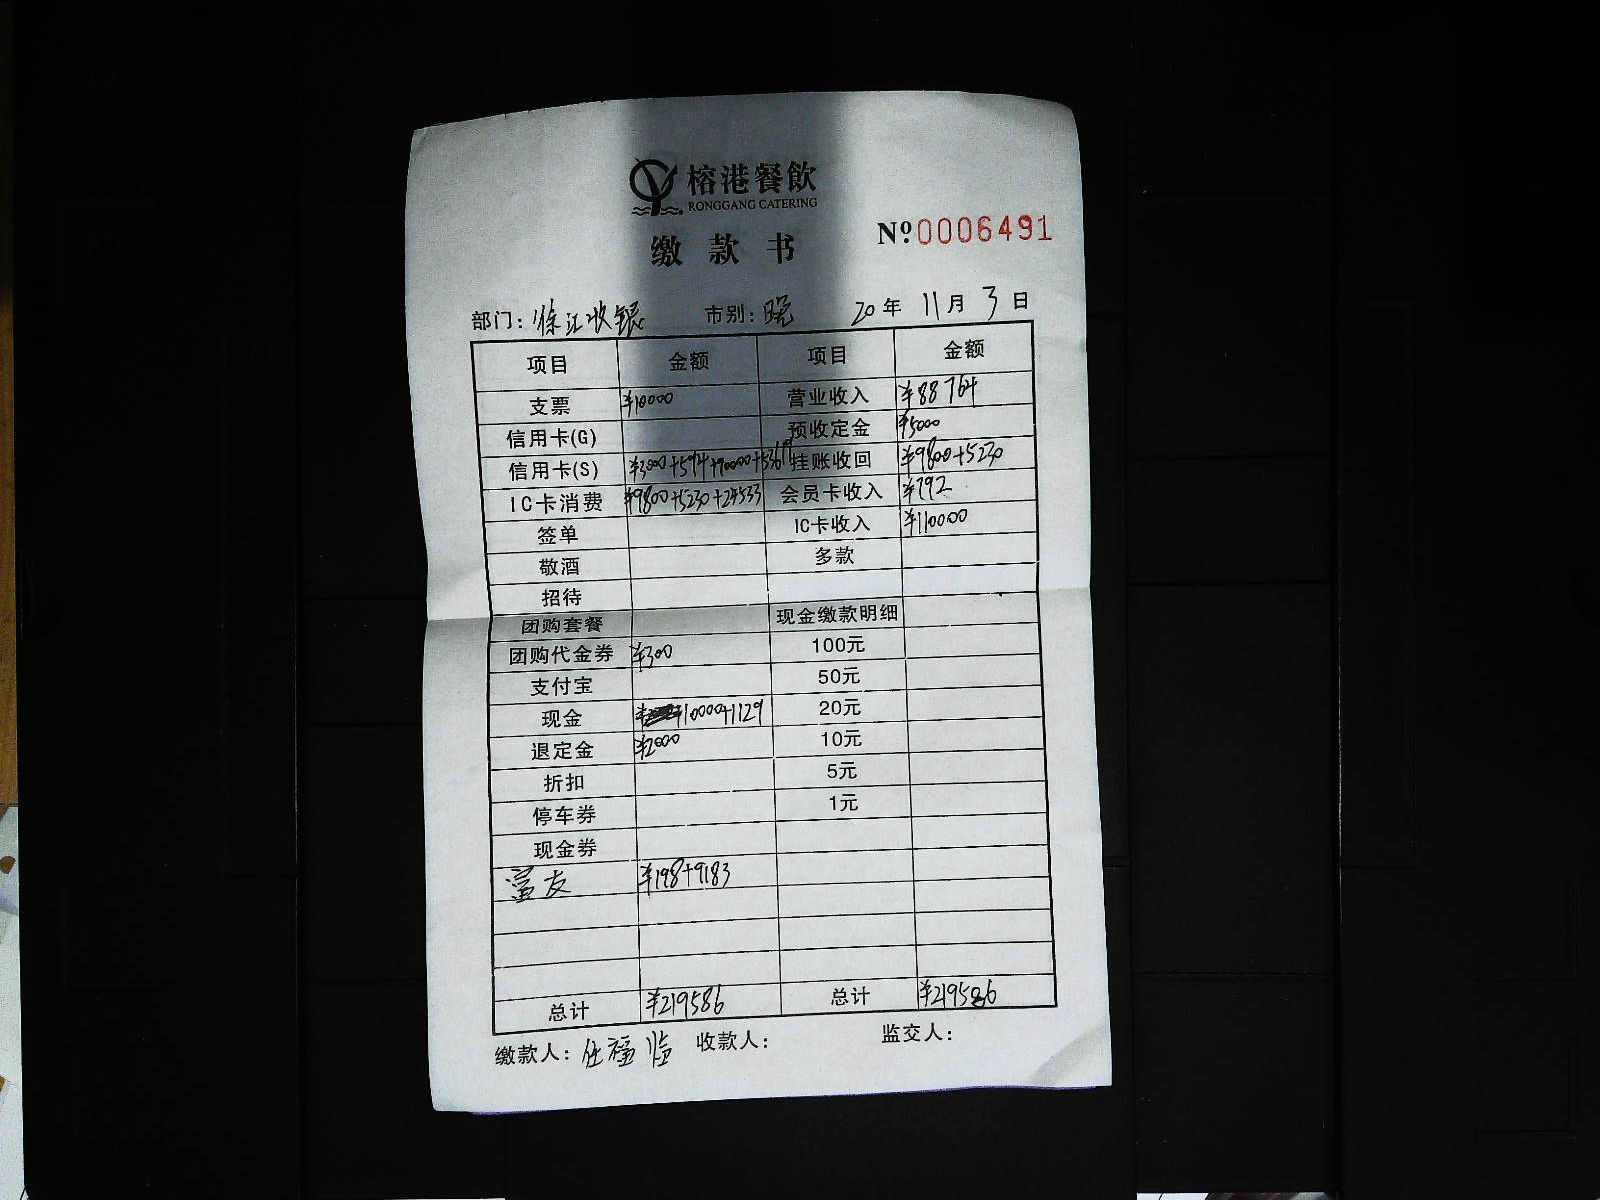 榕港餐飲
RONGGANG CATERING
缴款书
Nº0006491
部门：徐汇收银 市别：晚 20年 11月 3日
项目 金额 项目 金额
支票 ¥10000 营业收入 ¥88764
信用卡(G) 预收定金 ¥5000
信用卡(S) ¥3000+594+90000+53619 挂账收回 ¥9800+5230
IC卡消费 ¥9800+5230+24533 会员卡收入 ¥792
签单 IC卡收入 ¥110000
敬酒 多款
招待
团购套餐 现金缴款明细
团购代金券 ¥300 100元
支付宝 50元
现金 10000+1129 20元
退定金 ¥2000 10元
折扣 5元
停车券 1元
现金券
富友 ¥198+9183
总计 ¥219586 总计 ¥219586
缴款人：任福临 收款人： 监交人：